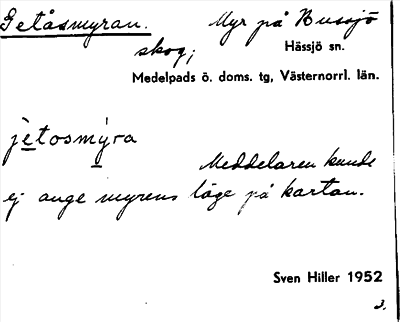 Getåsmyran. Myr på Bussjö
skog;
Hässjö sn.
Medelpads ö. doms. tg, Västernorrl. län.
jetosmyra
Meddelaren kunde
ej ange myrens läge på kartan.
Sven Hiller 1952